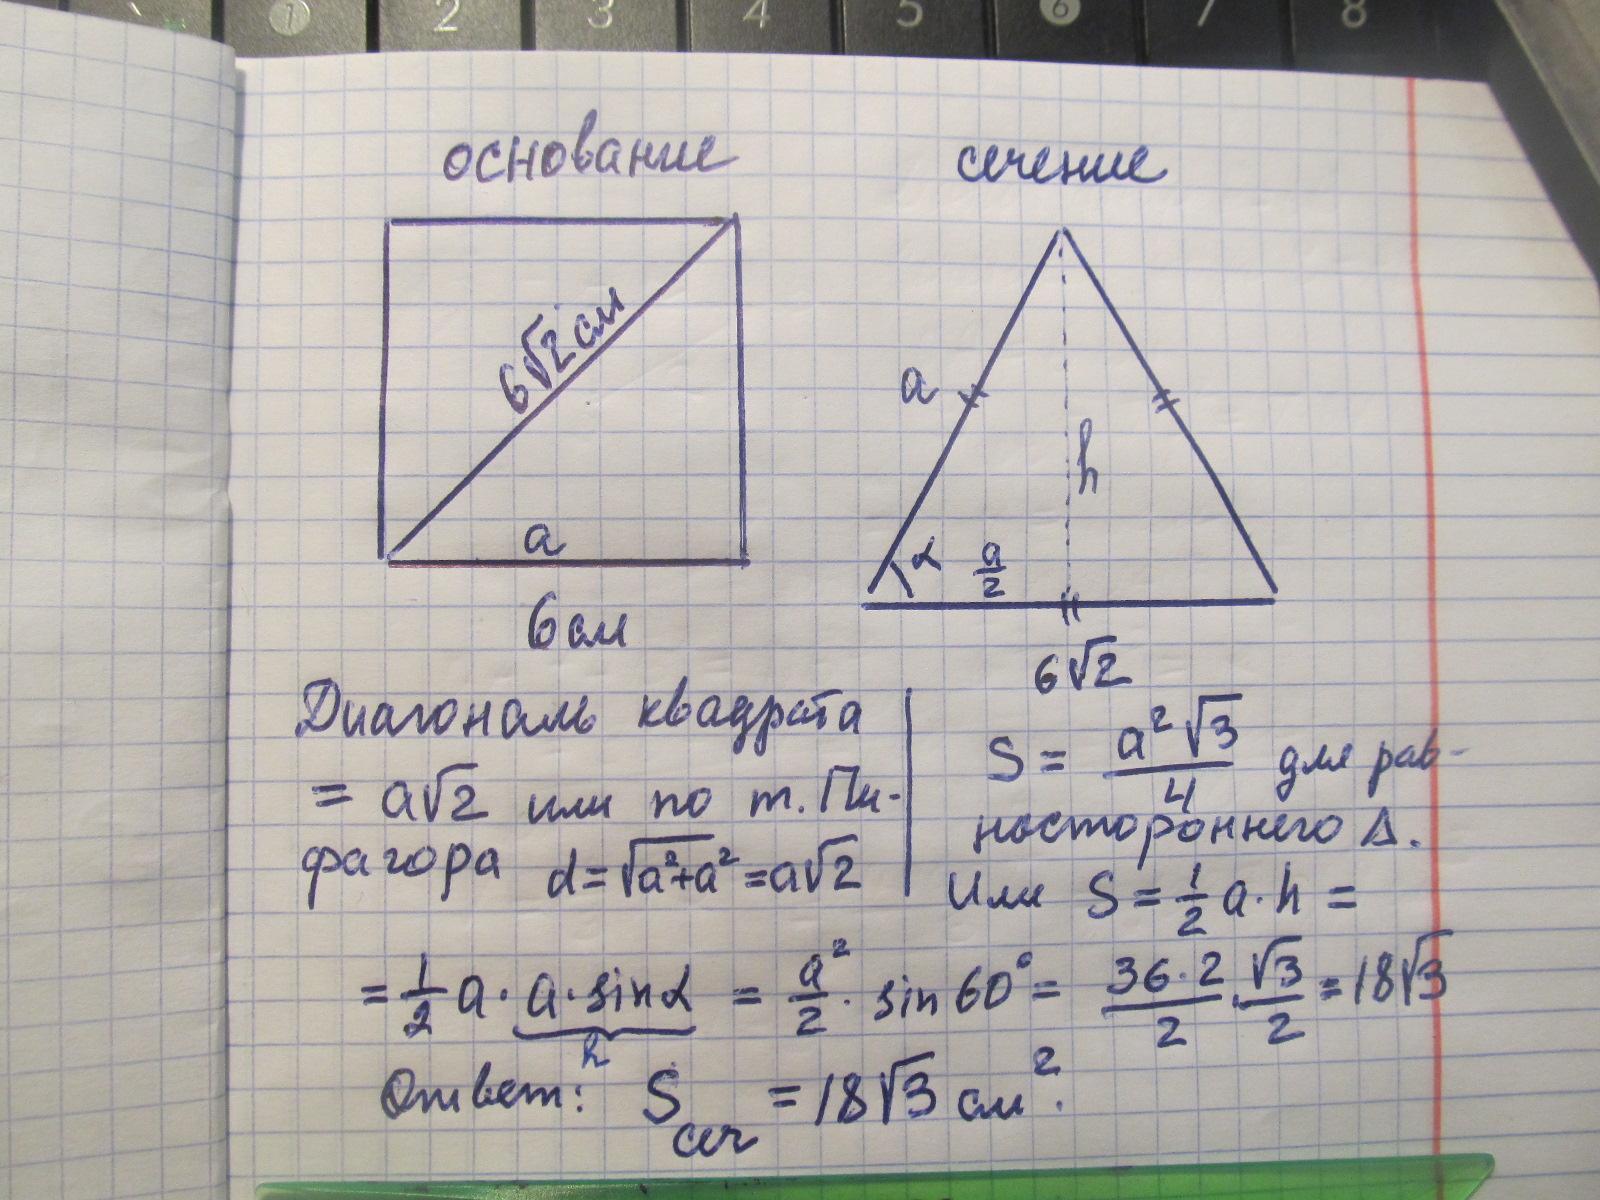 1 2 3 4 5 6 7 8
основание
сечение
6√2 см
a
6 см
a
h
α
a/2
6√2
Диагональ квадрата
= a√2 или по т. Пи-
фагора d=√a²+a² =a√2
S = a²√3/4 для рав-
ностороннего Δ.
Или S = 1/2 a·h =
= 1/2 a · a · sinα = a²/2 · sin 60° = 36·2/2 · √3/2 = 18√3
h
Ответ: Sсеч = 18√3 см².